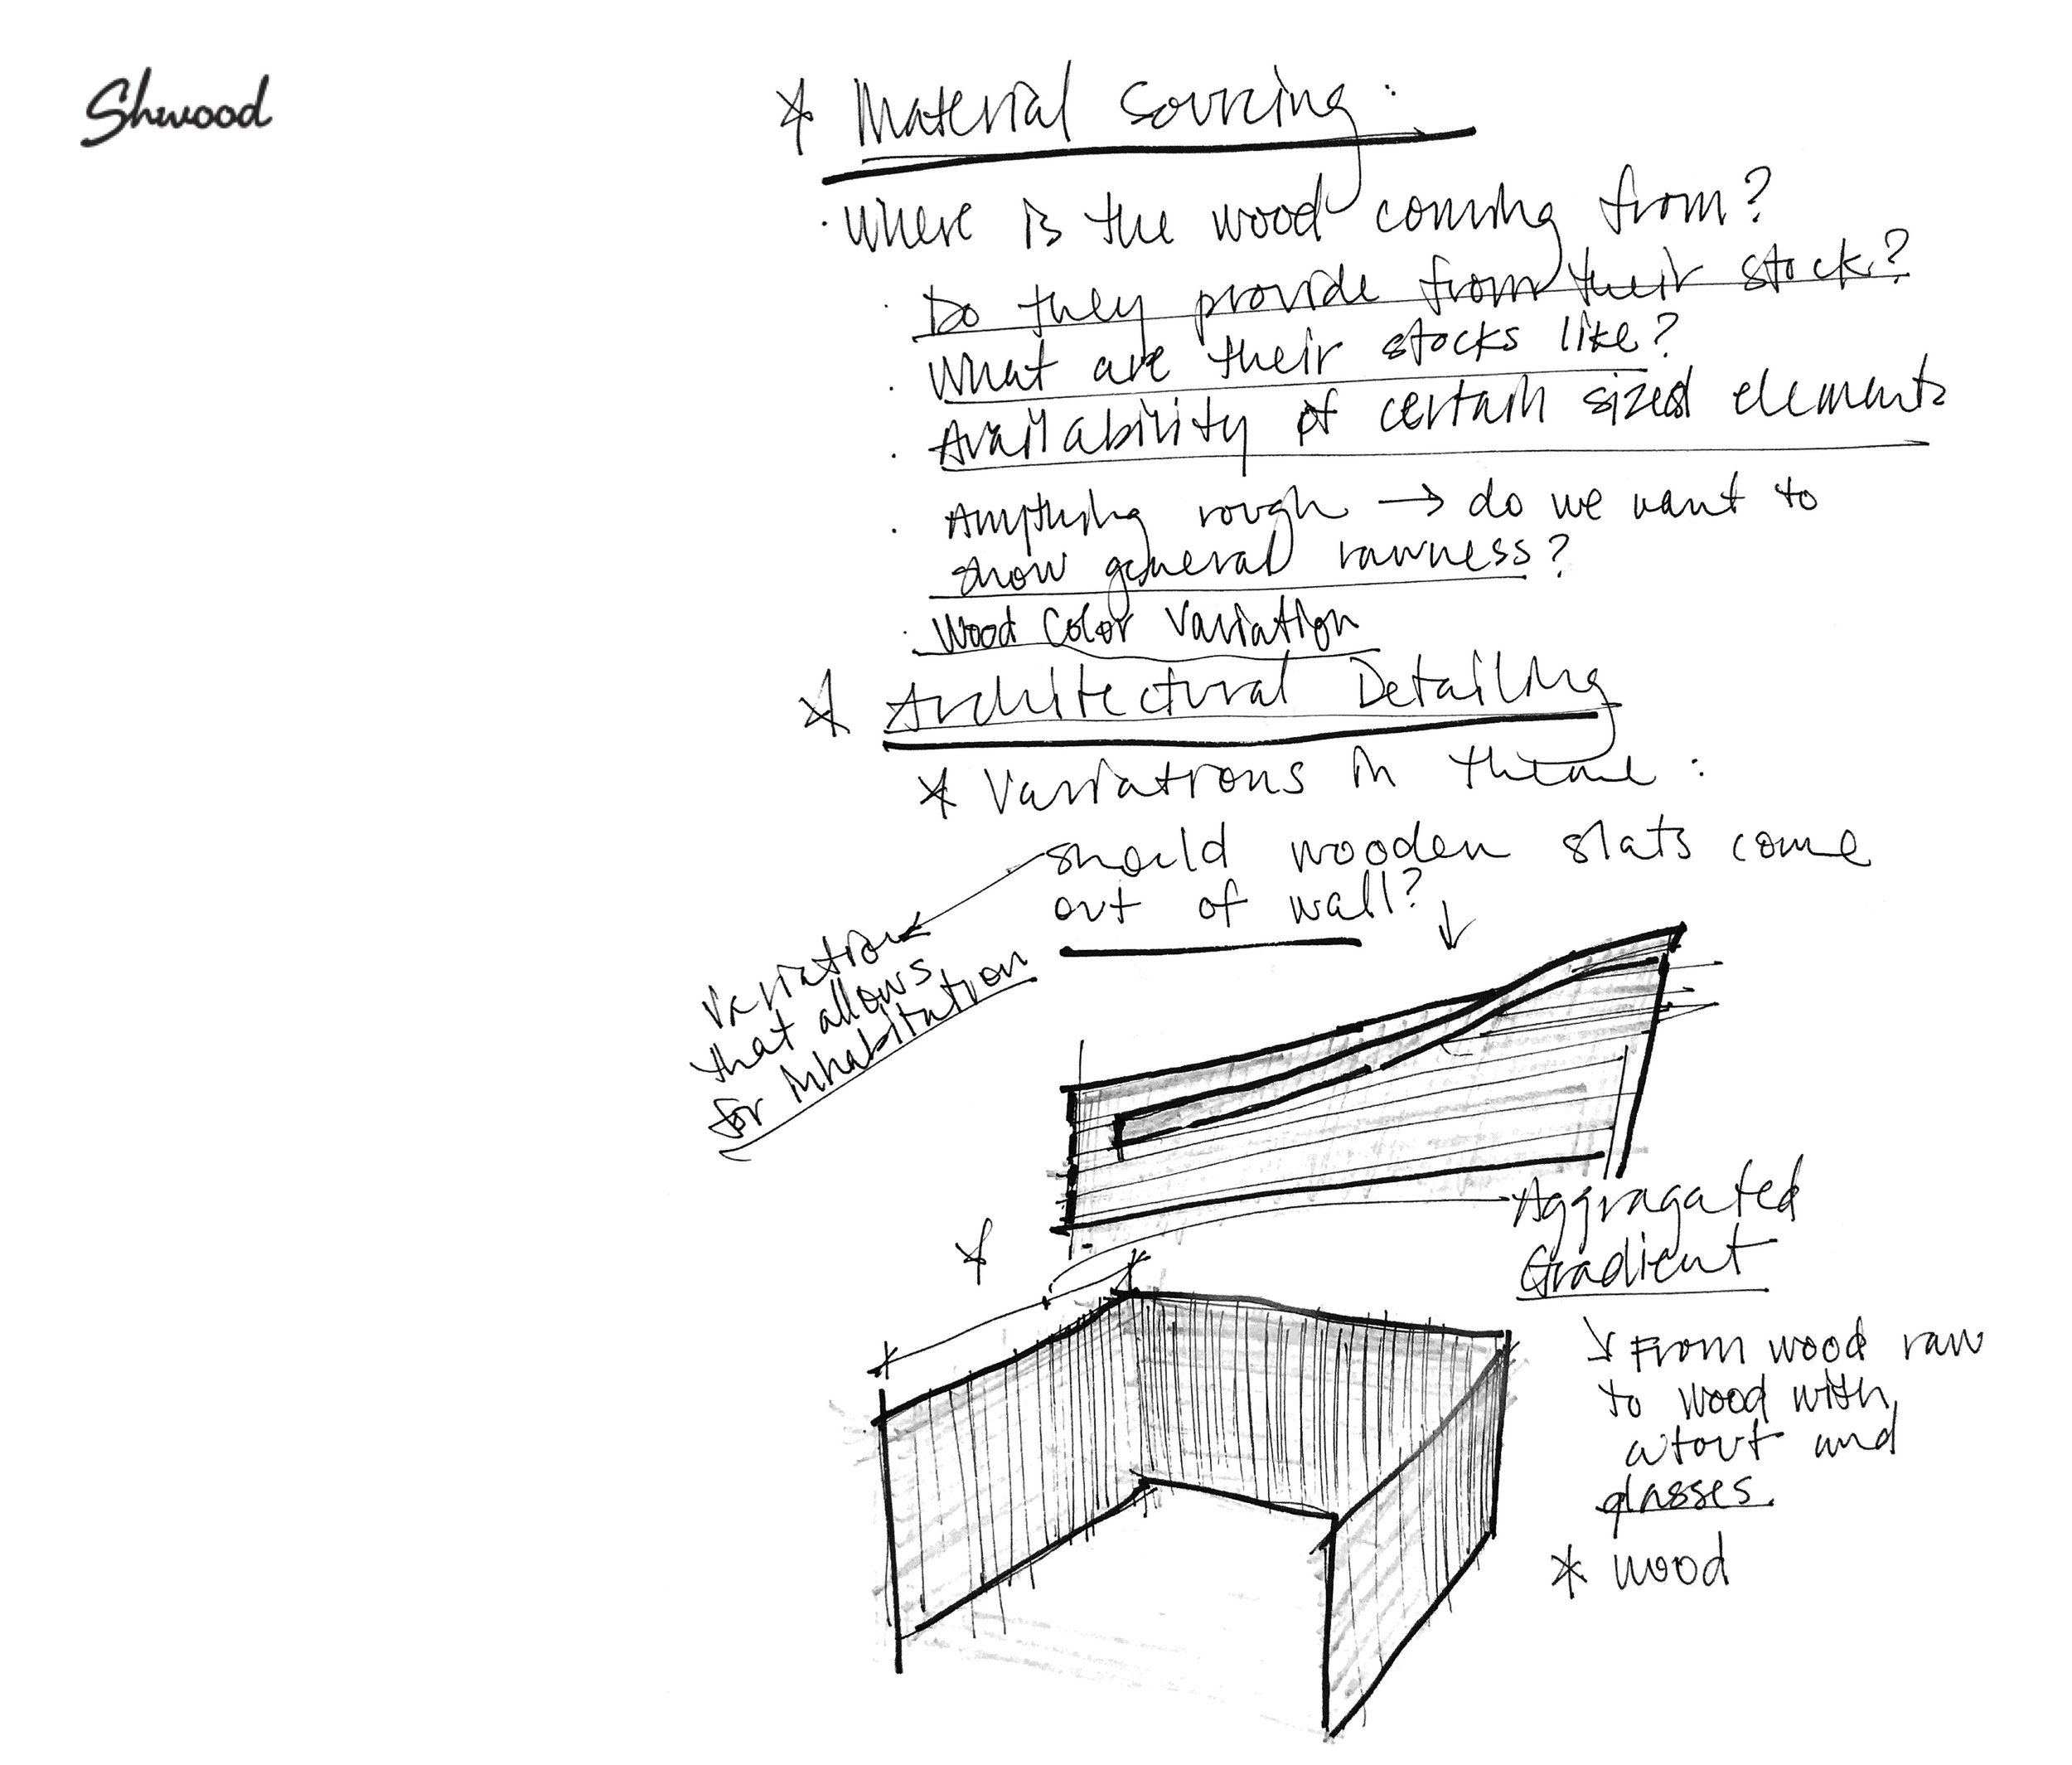 Shwood
* Material Sourcing:
· Where is the wood coming from?
· Do they provide from their stock?
· What are their stocks like?
· Availability of certain sized elements
· Anything rough → do we want to
show general rawness?
· Wood Color Variation
* Architectural Detailing
* Variations in theme:
should wooden slats come
out of wall?
Variations
that allows
for inhabitation
Aggragated
Gradient
From wood raw
to wood with
cutout and
glasses.
* wood